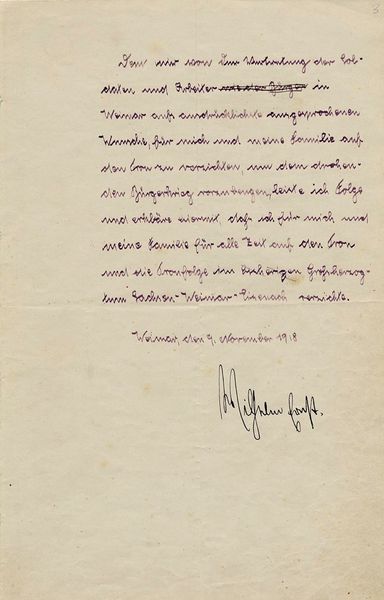 Dem mir von der Vertretung der Sol-
daten und Arbeiter in
Weimar auf's ausdrücklichste ausgesprochenen
Wunsche, für mich und meine Familie auf
den Tron zu verzichten, um dem drohen-
den Bürgerkrieg vorzubeugen, leiste ich Folge
und erkläre hiermit, daß ich für mich und
meine Familie für alle Zeit auf den Tron
und die Tronfolge im bisherigen Großherzog-
tum Sachsen-Weimar-Eisenach verzichte.
Weimar, den 9. November 1918
Wilhelm Ernst.